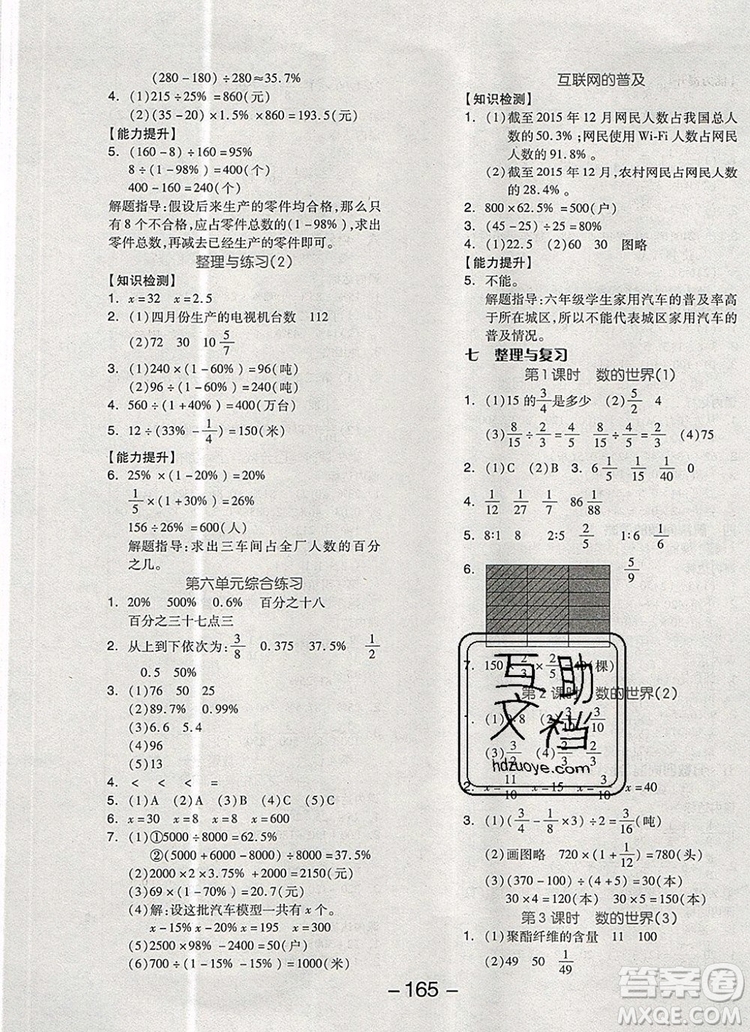 (280-180)÷280≈35.7%
4. (1)215÷25%=860(元)
(2)(35-20)×1.5%×860=193.5(元)
【能力提升】
5. (160-8)÷160=95%
8÷(1-98%)=400(个)
400-160=240(个)
解题指导:假设后来生产的零件均合格,那么只
有8个不合格,应占零件总数的(1-98%),求出
零件总数,再减去已经生产的零件即可。
整理与练习(2)
【知识检测】
1. x=32 x=2.5
2. (1)四月份生产的电视机台数 112
(2)72 30 10 5/7
3. (1)240×(1-60%)=96(吨)
(2)96÷(1-60%)=240(吨)
4. 560÷(1+40%)=400(万台)
5. 12÷(33%-1/4)=150(米)
【能力提升】
6. 25%×(1+30%)=26%
1/5×(1+30%)=26%
156÷26%=600(人)
解题指导:求出三车间占全厂人数的百分
之几。
第六单元综合练习
1. 20% 500% 0.6% 百分之十八
百分之三十七点三
2. 从上到下依次为:3/8 0.375 37.5% 1/2
0.5 50%
3. (1)76 50 25
(2)89.7%
(3)6.6 5.4
(4)92%
(5)13
4. < < = <
5. (1)A (2)A (3)C (4)B
6. x=30 x=8 x=600
7. (1)①5000÷8000=62.5%
②(5000+6000-8000)÷8000=37.5%
(2)2000+2000×3×2.5%=2150(元)
(3)69×(1-70%)=20.7(元)
(4)解:设这批汽车模型一共有x个。
x-15%x-20%x=52 x=80
(5)2500×98%-2400=50(户)
(6)700÷(1-25%)×(1-15%-25%)=560(个)
互联网的普及
【知识检测】
1. (1)截至2015年12月网民人数占我国总人
数的50.3%;网民使用Wi-Fi人数占网民
人数的91.8%。
(2)截至2015年12月,农村网民占网民人
数的28.4%。
2. 800×62.5%=500(户)
3. (45-25)÷25=80%
4. (1)22.5 (2)60 30 图略
【能力提升】
5. 不能。
解题指导:六年级学生家用汽车的普及率高
于所在城区,所以不能代表城区家用汽车的
普及情况。
七 整理与复习
第1课时 数的世界(1)
1. (1)15的3/4是多少 (2)5/2 4
(3)8/15÷2/3=□ 8/15÷□=2/3 (4)75
2. (1)C (2)B 3. 6 1/5 1/15 1/40
4. 1/12 1/27 86 1/88
5. 8∶1 8∶5 2∶5 1∶6 1/6 5/8
5/9
6.
7. 150×2/3×2/5=40(棵)
第2课时 数的世界(2)
互助
文档
hdzuoye.com
3. (1)(3/4-1/8×3)÷2=3/16(吨)
(2)画图略 720×(1+1/12)=780(头)
(3)(370-100)÷(4+5)=30(本)
30×4=120(本) 30×5=150(本)
第3课时 数的世界(3)
1. (1)聚酯纤维的含量 11 100
(2)50 50 1/49
- 165 -
答案圈
MXQE.COM